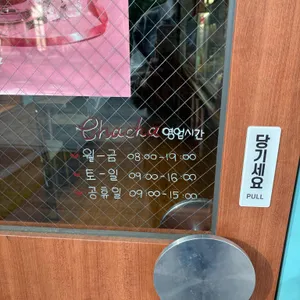 Chacha 영업시간
월-금 08:00-19:00
토-일 09:00-16:00
공휴일 09:00-15:00
당기세요
PULL